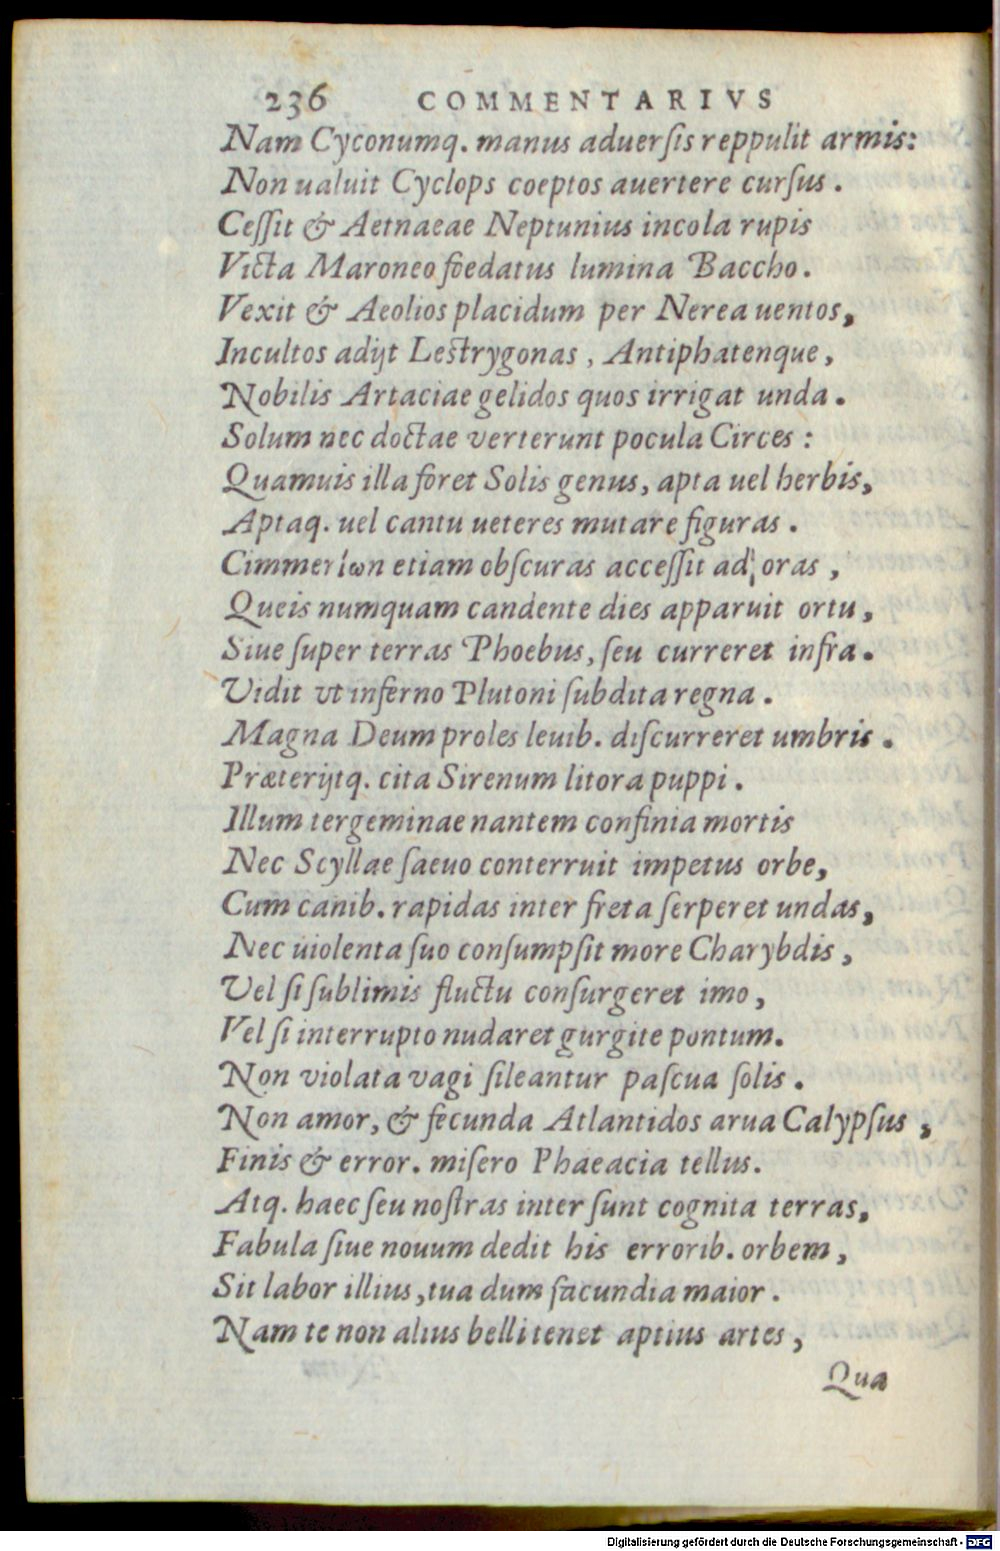 236 COMMENTARIVS
Nam Cyconumq. manus aduerſis reppulit armis:
Non ualuit Cyclops coeptos auertere curſus.
Ceſſit & Aetnaeae Neptunius incola rupis
Victa Maroneo foedatus lumina Baccho.
Vexit & Aeolios placidum per Nerea uentos,
Incultos adijt Leſtrygonas, Antiphatenque,
Nobilis Artaciae gelidos quos irrigat unda.
Solum nec doctae verterunt pocula Circes:
Quamuis illa foret Solis genus, apta uel herbis,
Aptaq. uel cantu ueteres mutare figuras.
Cimmeríωn etiam obſcuras acceſſit ad oras,
Queis numquam candente dies apparuit ortu,
Siue ſuper terras Phoebus, ſeu curreret infra.
Vidit vt inferno Plutoni ſubdita regna.
Magna Deum proles leuib. diſcurreret umbris.
Præterijtq. cita Sirenum litora puppi.
Illum tergeminae nantem confinia mortis
Nec Scyllae ſaeuo conterruit impetus orbe,
Cum canib. rapidas inter freta ſerperet undas,
Nec uiolenta ſuo conſumpſit more Charybdis,
Vel ſi ſublimis fluctu conſurgeret imo,
Vel ſi interrupto nudaret gurgite pontum.
Non violata vagi ſileantur paſcua ſolis.
Non amor, & fecunda Atlantidos arua Calypſus,
Finis & error. miſero Phaeacia tellus.
Atq. haec ſeu noſtras inter ſunt cognita terras,
Fabula ſiue nouum dedit his errorib. orbem,
Sit labor illius, tua dum facundia maior.
Nam te non alius belli tenet aptius artes,
Qua
Digitalisierung gefördert durch die Deutsche Forschungsgemeinschaft - DFG